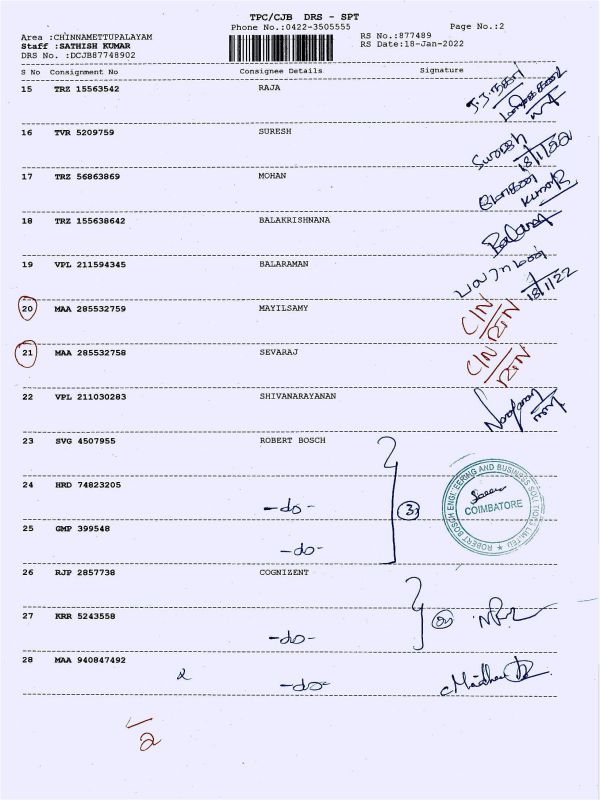 TPC/CJB DRS - SPT
Phone No.:0422-3505555
Page No.:2
Area :CHINNAMETTUPALAYAM
RS No.:877489
Staff :SATHISH KUMAR
RS Date:18-Jan-2022
DRS No. :DCJB87748902
S No Consignment No Consignee Details Signature
15 TRZ 15563542 RAJA
16 TVR 5209759 SURESH
Suresh
18/1/22
17 TRZ 56863869 MOHAN
Kumar
18 TRZ 155638642 BALAKRISHNANA
19 VPL 211594345 BALARAMAN
18/1/22
20 MAA 285532759 MAYILSAMY
CIN
21 MAA 285532758 SEVARAJ
CIN
22 VPL 211030283 SHIVANARAYANAN
23 SVG 4507955 ROBERT BOSCH
24 HRD 74823205
-do-
3
25 GMP 399548
-do-
ROBERT BOSCH ENGINEERING AND BUSINESS SOLUTIONS LIMITED ★
COIMBATORE
26 RJP 2857738 COGNIZENT
27 KRR 5243558
-do-
28 MAA 940847492
-do-
2